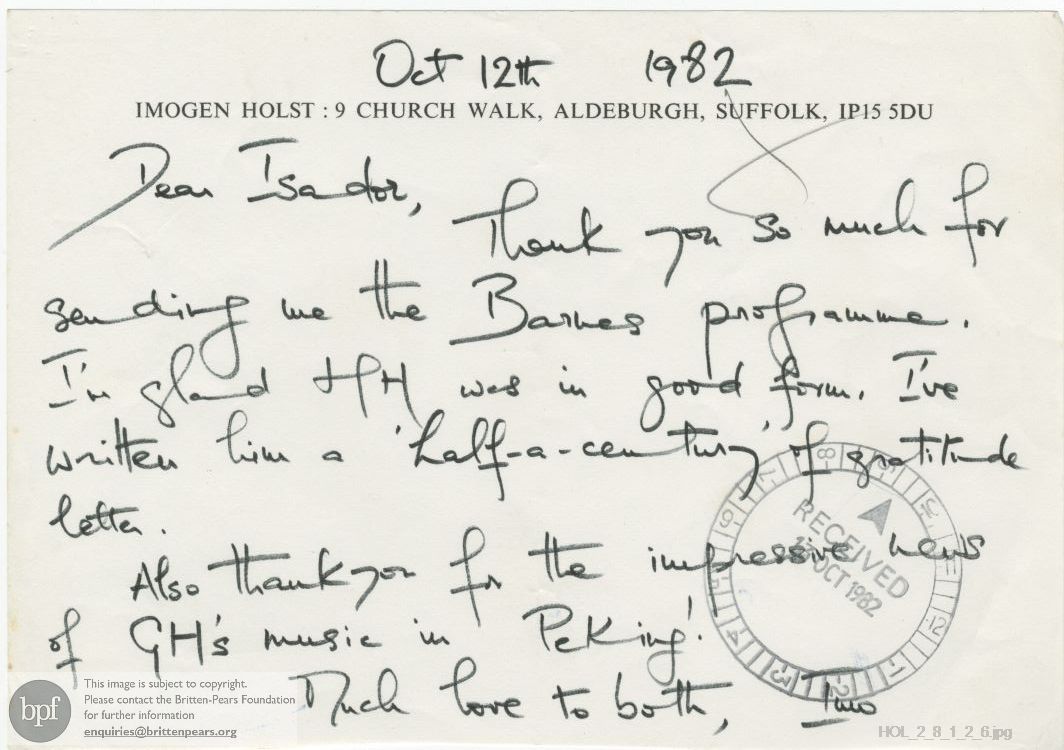 Oct 12th 1982
IMOGEN HOLST : 9 CHURCH WALK, ALDEBURGH, SUFFOLK, IP15 5DU
Dear Isador,
Thank you so much for
sending me the Barnes programme.
I'm glad HH was in good form. I've
written him a 'half-a-century' of gratitude
letter.
Also thank you for the impressive news
of GH's music in Peking!
Much love to both, Imo
RECEIVED
OCT 1982
bpf
This image is subject to copyright.
Please contact the Britten-Pears Foundation
for further information
enquiries@brittenpears.org
HOL_2_8_1_2_6.jpg